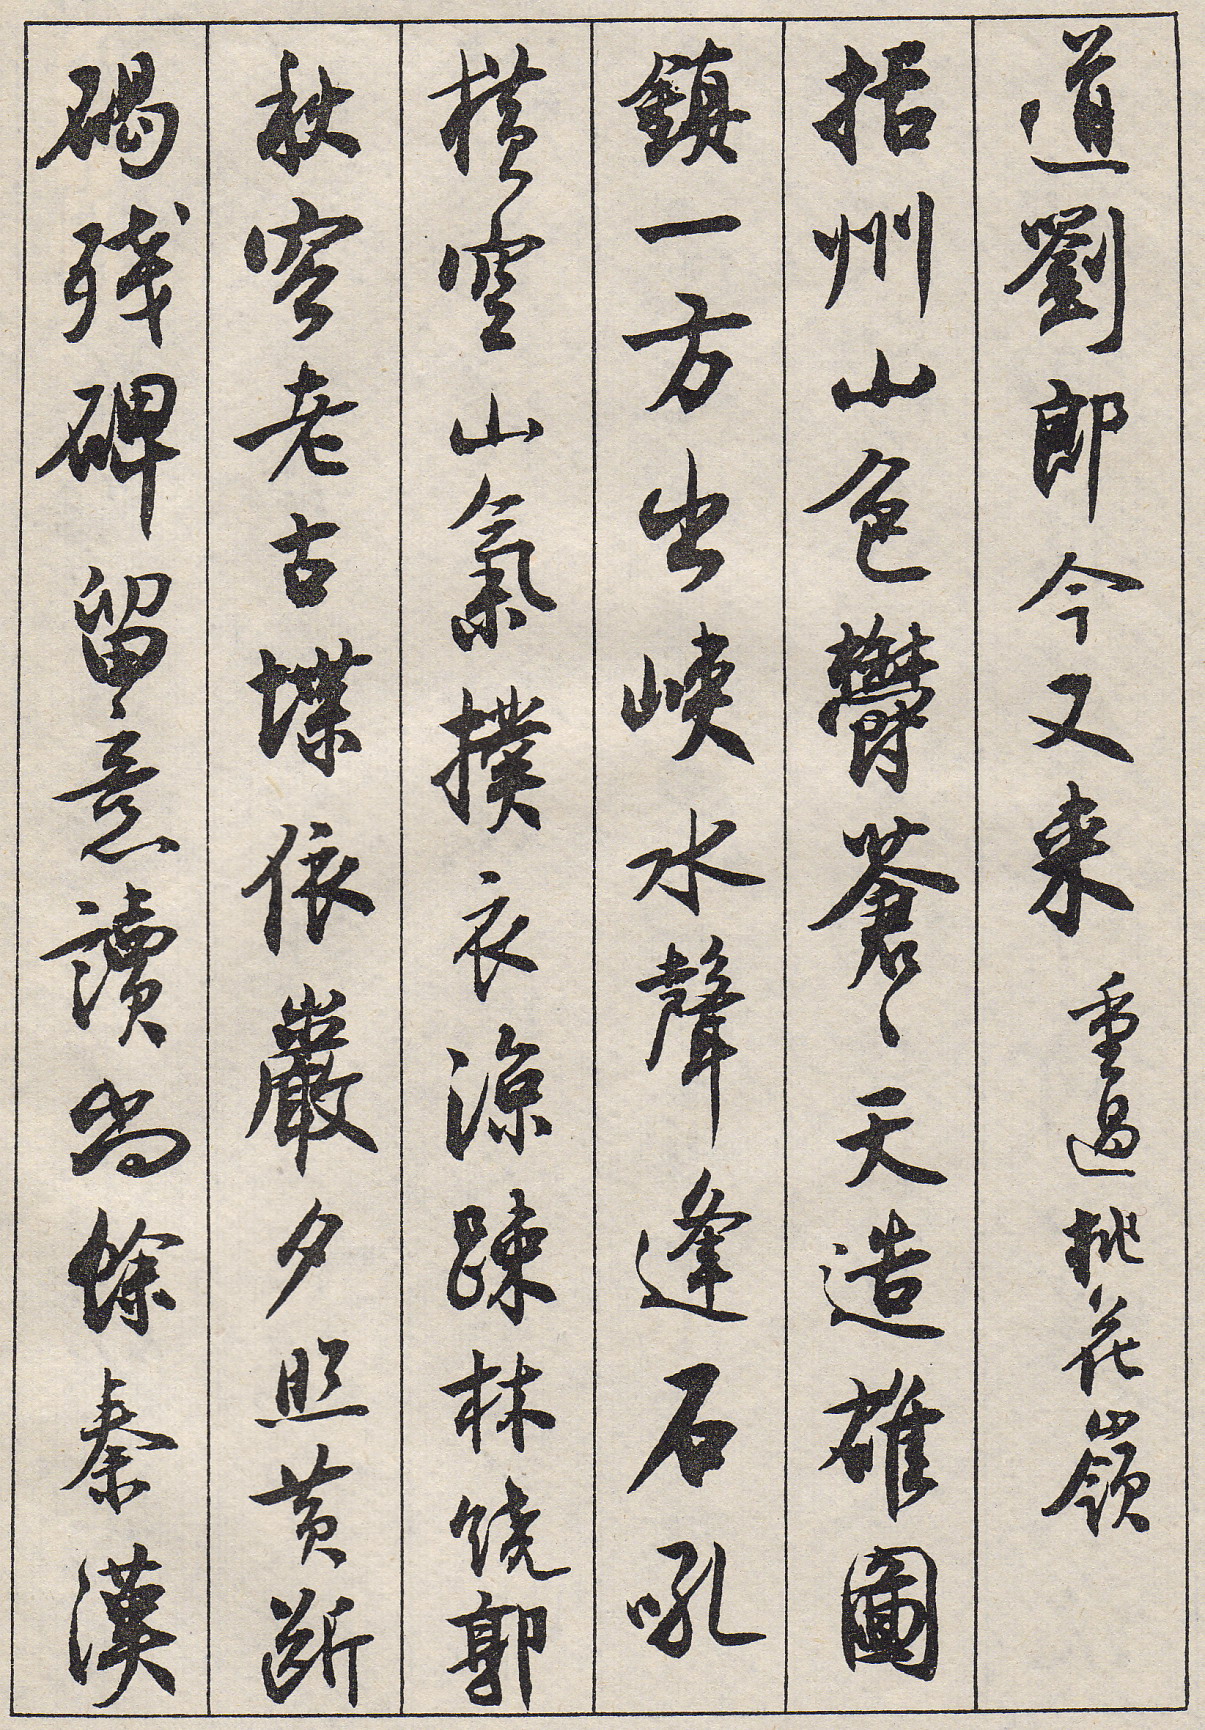 道劉郎今又来 重過桃花嶺
括州山色鬱蒼〻天造雄圖
鎮一方出峽水聲逢石吼
横空山氣撲衣涼疎林饶郭
秋容老古堞依巖夕照黄斷
碣残碑留意讀尚餘秦漢